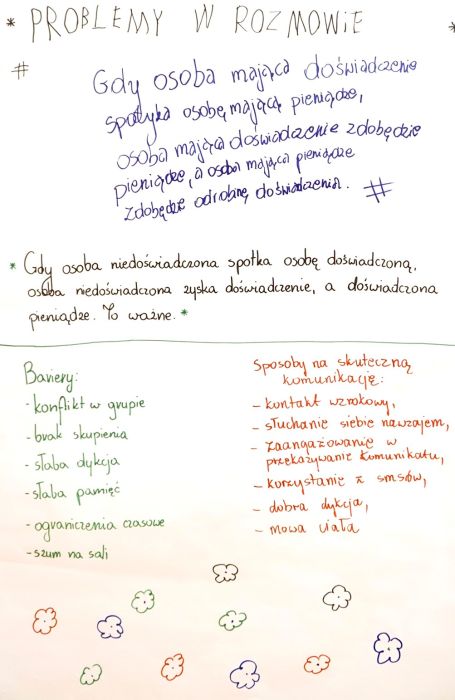 * PROBLEMY W ROZMOWIE *
# Gdy osoba mająca doświadczenie
spotyka osobę mającą pieniądze,
osoba mająca doświadczenie zdobędzie
pieniądze, a osoba mająca pieniądze
zdobędzie odrobinę doświadczenia. #
* Gdy osoba niedoświadczona spotka osobę doświadczoną,
osoba niedoświadczona zyska doświadczenie, a doświadczona
pieniądze. To ważne. *
Bariery:
- konflikt w grupie
- brak skupienia
- słaba dykcja
- słaba pamięć
- ograniczenia czasowe
- szum na sali
Sposoby na skuteczną
komunikację:
- kontakt wzrokowy,
- słuchanie siebie nawzajem,
- zaangażowanie w
przekazywanie komunikatu,
- korzystanie z smsów,
- dobra dykcja,
- mowa ciała